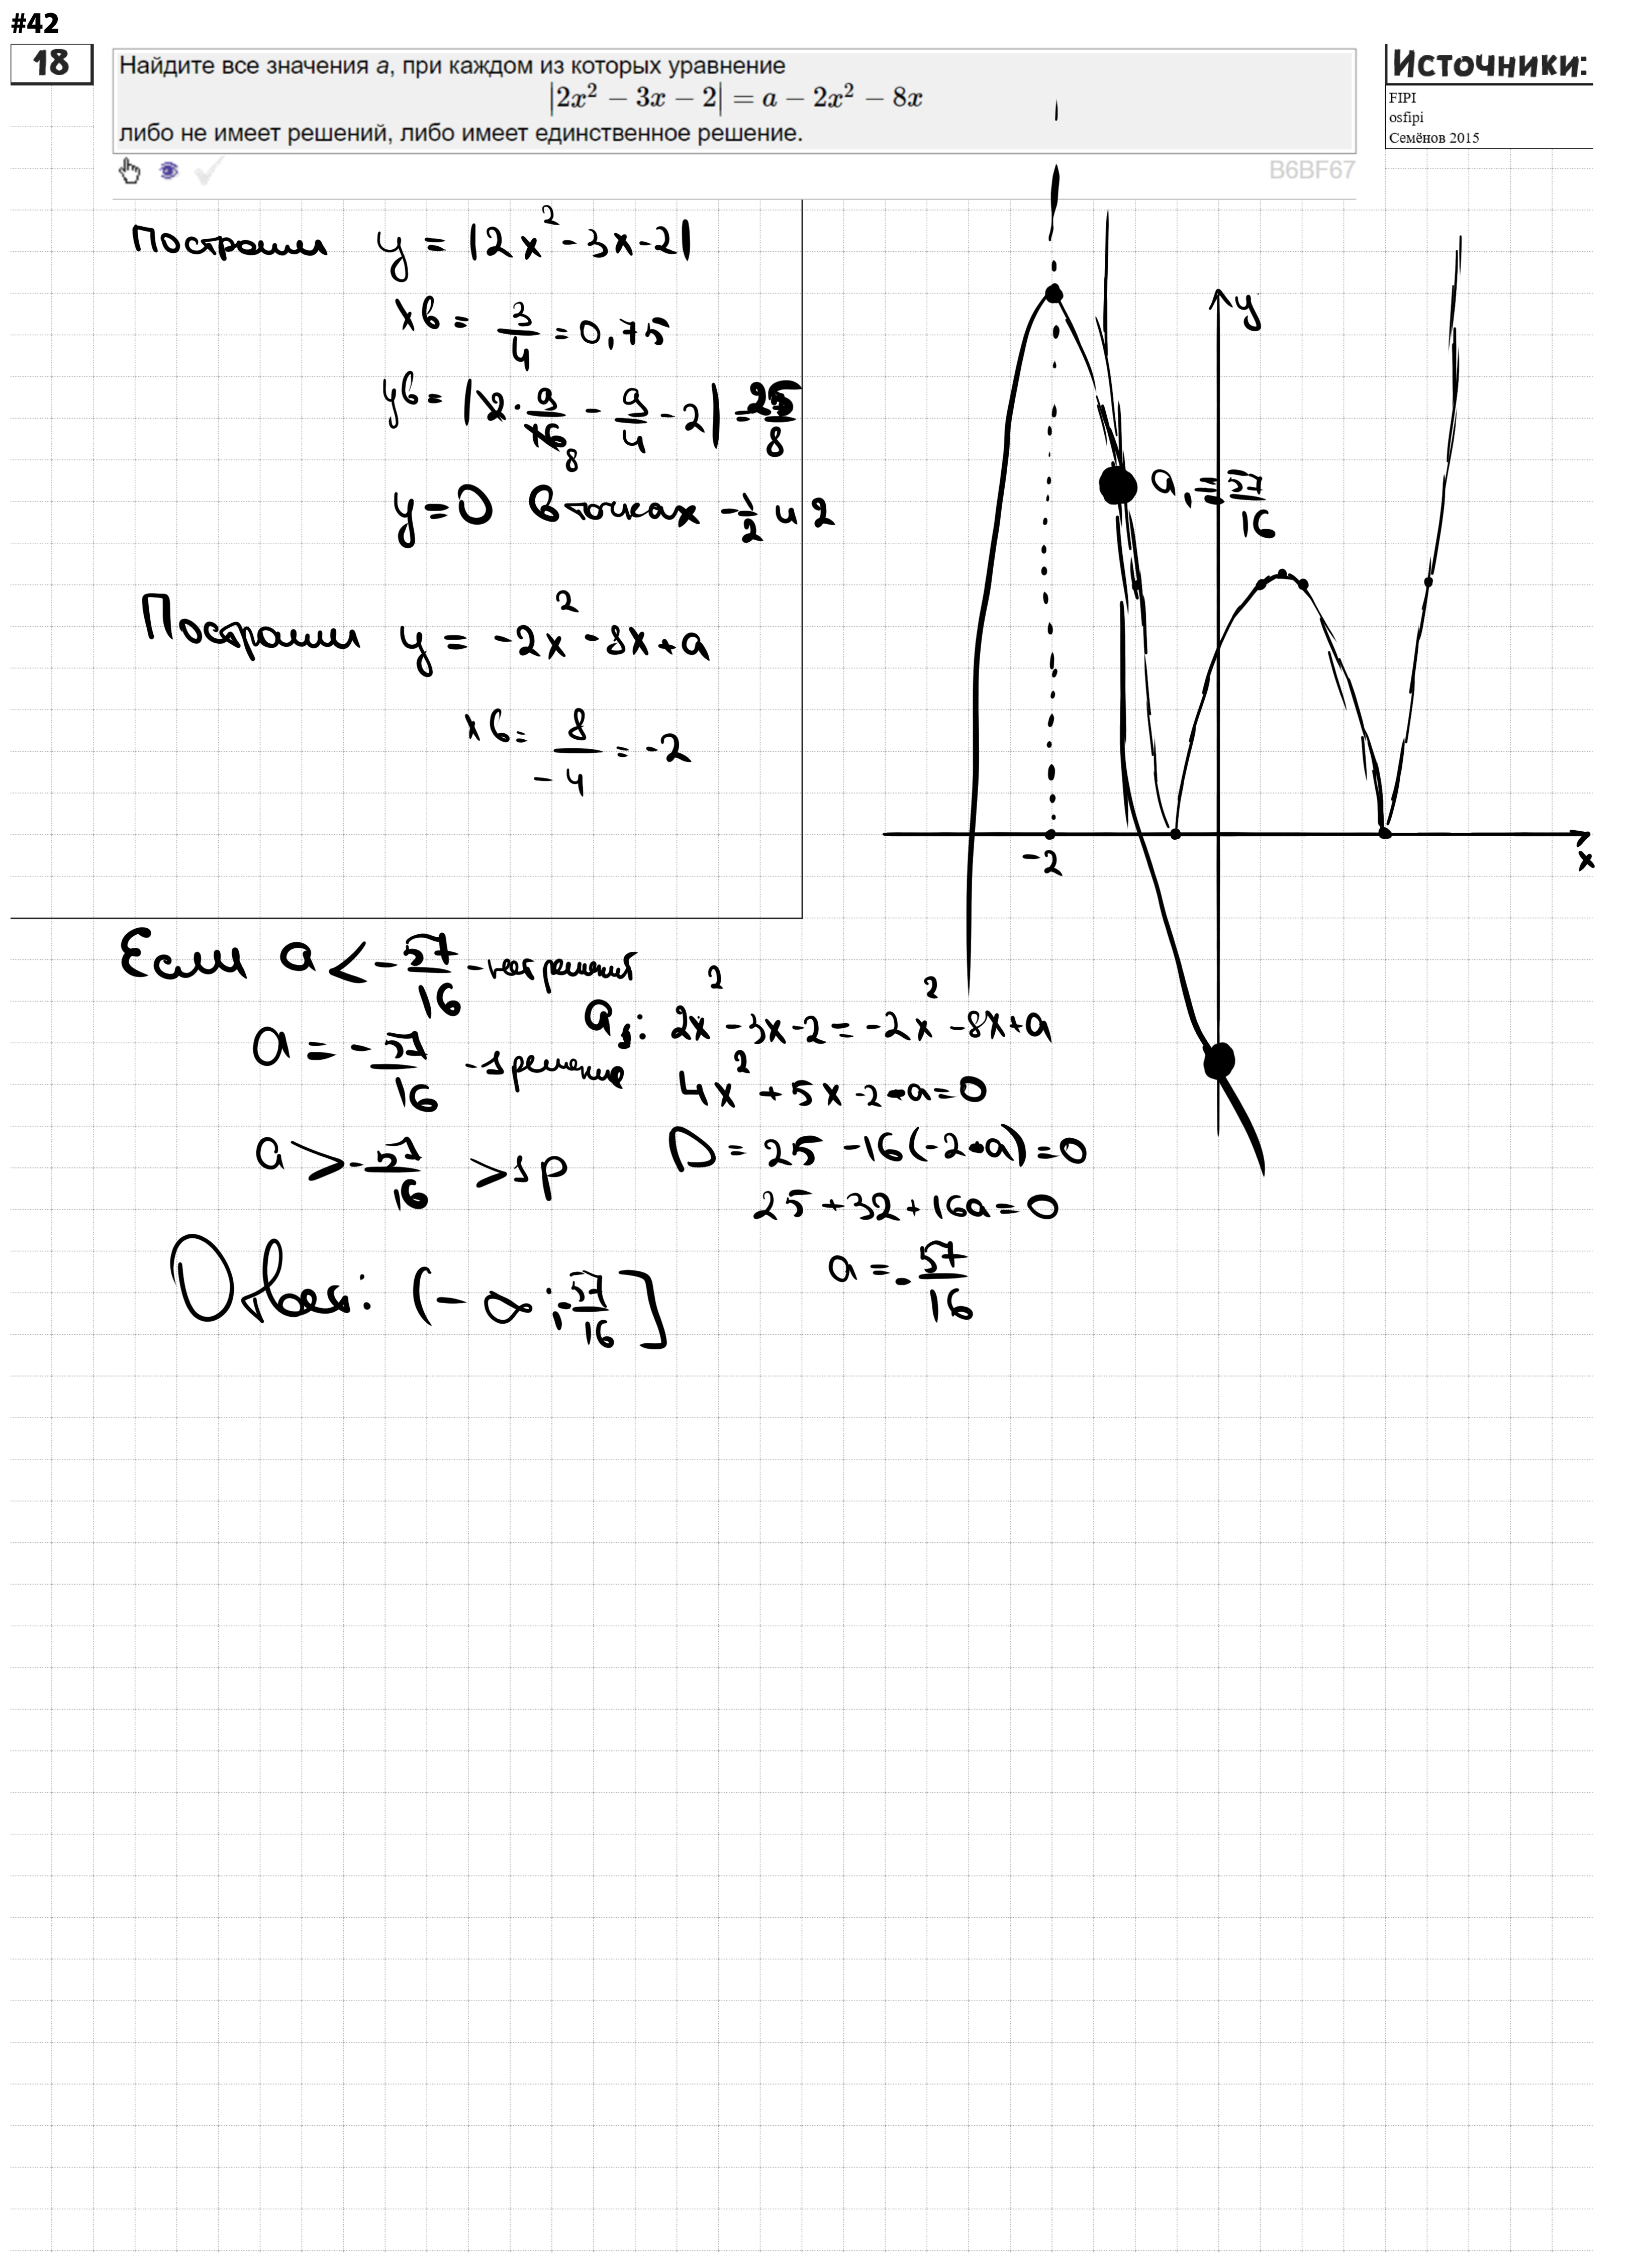 #42
18
Найдите все значения a, при каждом из которых уравнение
|2x² − 3x − 2| = a − 2x² − 8x
либо не имеет решений, либо имеет единственное решение.
Источники:
FIPI
osfipi
Семёнов 2015
B6BF67
Построим y = |2x² - 3x - 2|
xв = 3/4 = 0,75
yв = |2 · 9/16 8 - 9/4 - 2| = 25/8
y = 0 в точках -1/2 и 2
Построим y = -2x² - 8x + a
xв = 8/-4 = -2
y
a₁ = 57/16
-2
x
Если a < -57/16 - нет решений
a = -57/16 - 1 решение
a > -57/16 > 1 р
a₁: 2x² - 3x - 2 = -2x² - 8x + a
4x² + 5x - 2 - a = 0
D = 25 - 16(-2 - a) = 0
25 + 32 + 16a = 0
a = -57/16
Ответ: (-∞; -57/16]